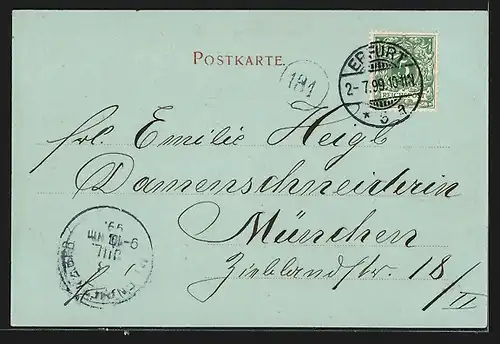 POSTKARTE.
ERFURT
2-7.99.10-11N
* 3 a.
181
frl. Emilie Heigl
Damenschneiderin
München
Zieblandstr. 18/II
JUL.
99.